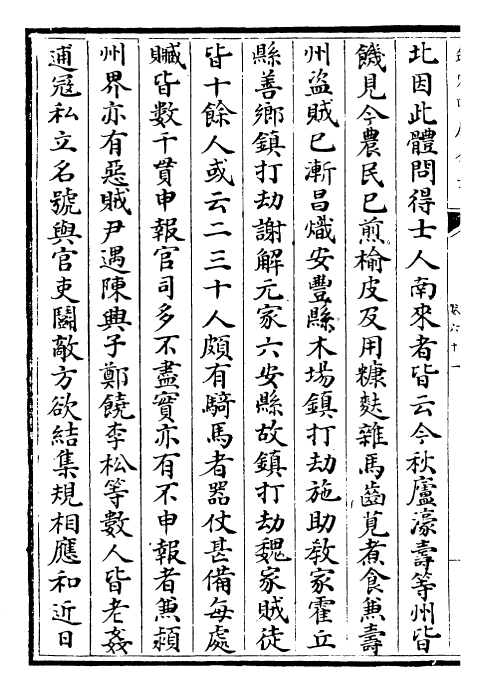 北因此體問得士人南來者皆云今秋廬濠壽等州皆
饑見今農民已煎榆皮及用糠麩雜馬齒莧煮食兼壽
州盗賊已漸昌熾安豐縣木場鎮打劫施助教家霍丘
縣善鄉鎮打劫謝解元家六安縣故鎮打劫魏家賊徒
皆十餘人或云二三十人頗有騎馬者器仗甚備每處
贓皆數千貫申報官司多不盡實亦有不申報者兼潁
州界亦有惡賊尹遇陳興子鄭饒李松等數人皆老姦
逋冦私立名號與官吏鬭敵方欲結集規相應和近日